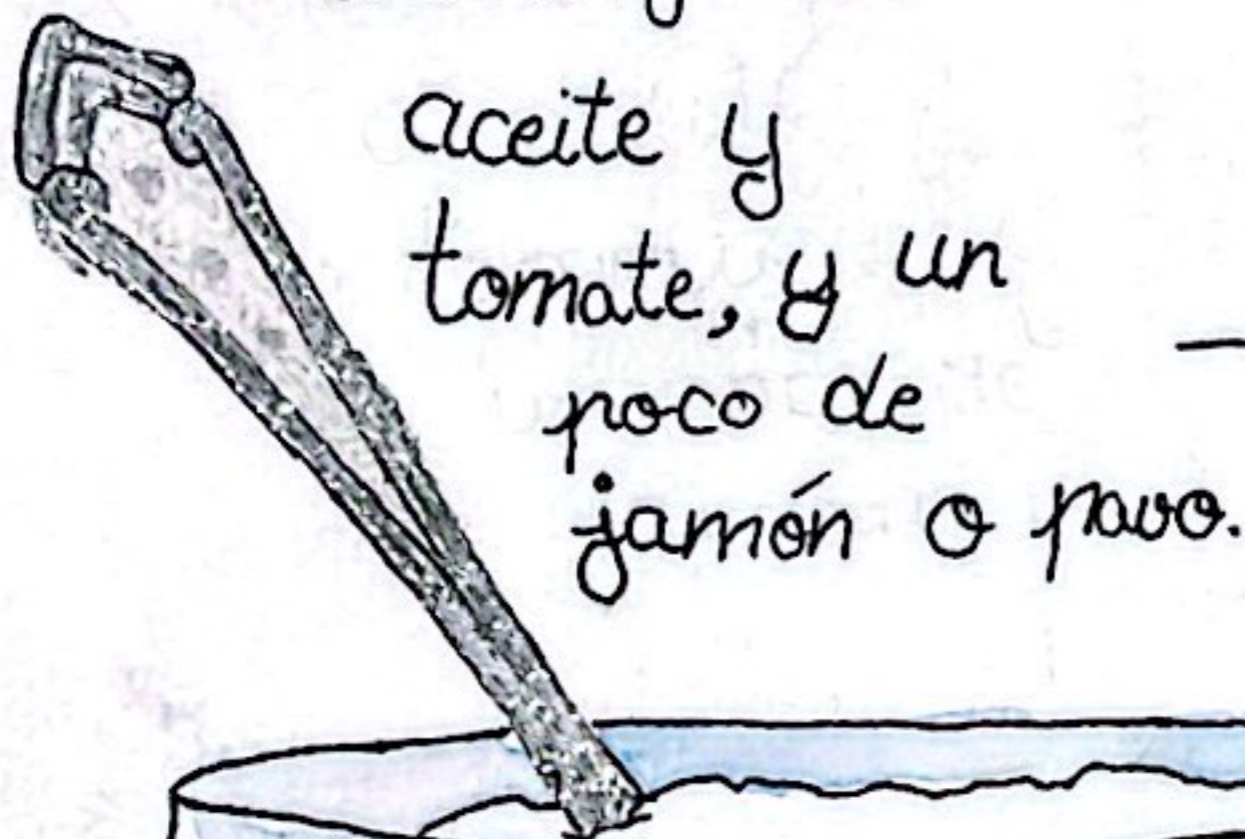 aceite y
tomate, y un
poco de
jamón o pavo.